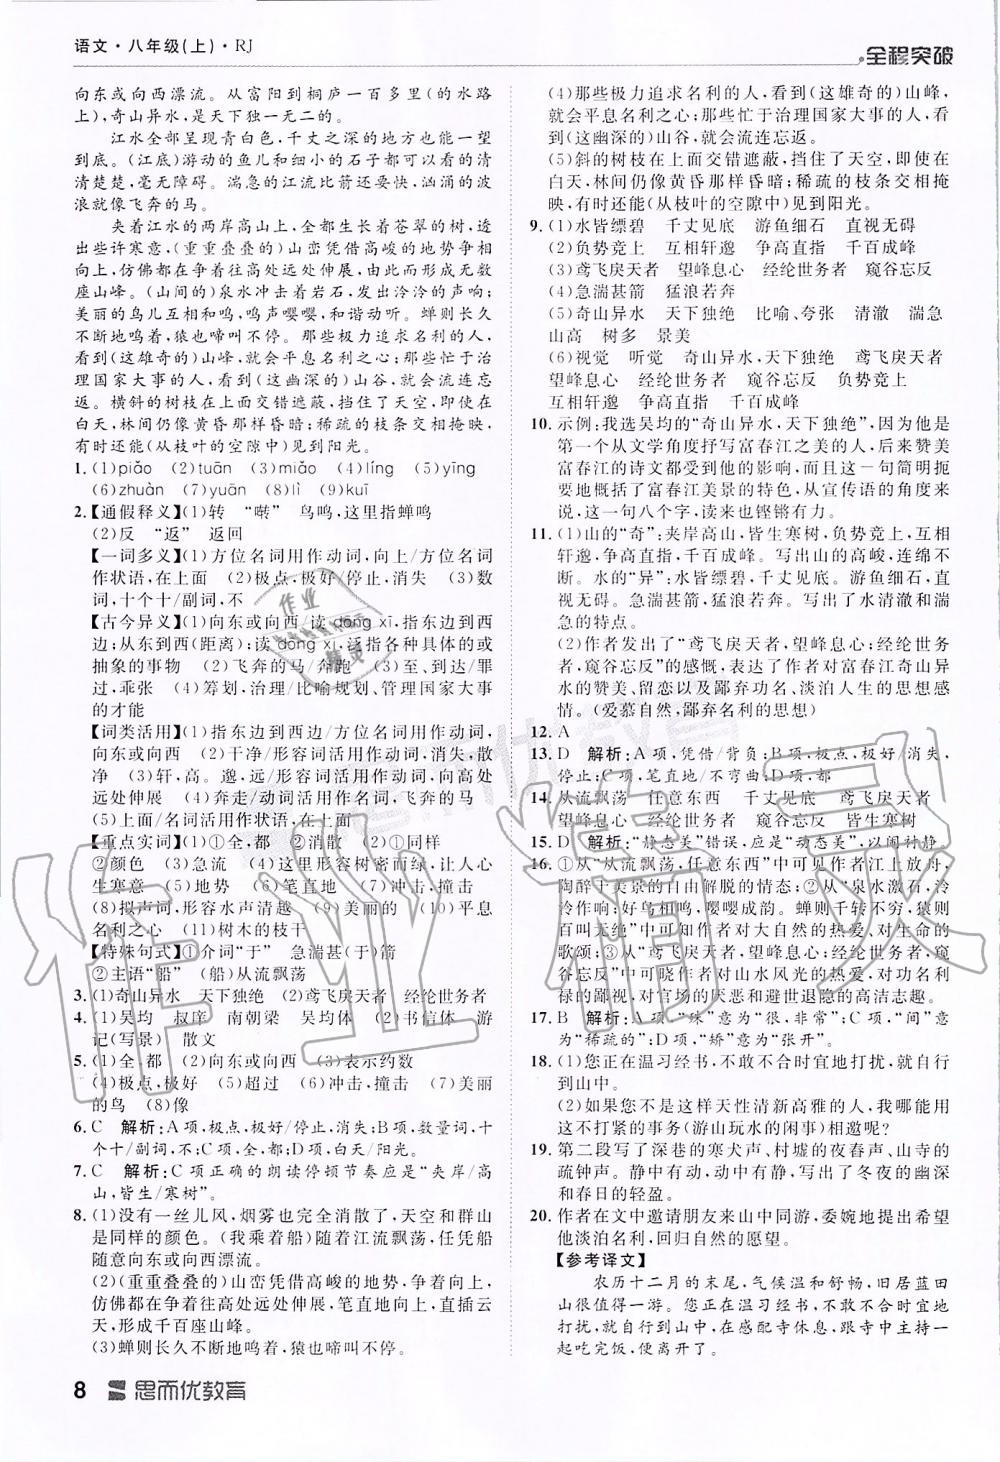 语文·八年级(上)·RJ
全程突破
向东或向西漂流。从富阳到桐庐一百多里(的水路
上),奇山异水,是天下独一无二的。
江水全部呈现青白色,千丈之深的地方也能一望
到底。(江底)游动的鱼儿和细小的石子都可以看的清
清楚楚,毫无障碍。湍急的江流比箭还要快,汹涌的波
浪就像飞奔的马。
夹着江水的两岸高山上,全都生长着苍翠的树,透
出些许寒意,(重重叠叠的)山峦凭借高峻的地势争相
向上,仿佛都在争着往高处远处伸展,由此而形成无数
座山峰。(山间的)泉水冲击着岩石,发出泠泠的声响;
美丽的鸟儿互相和鸣,鸣声嘤嘤,和谐动听。蝉则长久
不断地鸣着,猿也啼叫不停。那些极力追求名利的人,
看到(这雄奇的)山峰,就会平息名利之心;那些忙于治
理国家大事的人,看到(这幽深的)山谷,就会流连忘
返。横斜的树枝在上面交错遮蔽,挡住了天空,即使在
白天,林间仍像黄昏那样昏暗;稀疏的枝条交相掩映,
有时还能(从枝叶的空隙中)见到阳光。
1. (1)piǎo (2)tuān (3)miǎo (4)líng (5)yīng
(6)zhuàn (7)yuān (8)lì (9)kuī
2. 【通假释义】(1)转 “啭” 鸟鸣,这里指蝉鸣
(2)反 “返” 返回
【一词多义】(1)方位名词用作动词,向上/方位名词
作状语,在上面 (2)极点、极好/停止,消失 (3)数
词,十个十/副词,不
【古今异义】(1)向东或向西,读 dōng xī,指东边到
西边;从东到西(距离);读 dōng xi,泛指各种具体的或
抽象的事物 (2)飞奔的马/奔跑 (3)至、到达/罪
过,乖张 (4)筹划,治理/比喻规划、管理国家大事
的才能
【词类活用】(1)指东边到西边/方位名词用作动词,
向东或向西 (2)干净/形容词用作动词,消失,散
净 (3)轩,高。邈,远/形容词用作动词,向高处
远处伸展 (4)奔走/动词用作名词,飞奔的马
(5)上面/名词用作状语,在上面
【重点实词】(1)①全,都 ②消散 (2)①同样
②颜色 (3)急流 (4)这里形容树密而绿,让人心
生寒意 (5)地势 (6)笔直地 (7)冲击,撞击
(8)拟声词,形容水声清越 (9)美丽的 (10)平息
名利之心 (11)树木的枝干
【特殊句式】①介词“于” 急湍甚(于)箭
②主语“船” (船)从流飘荡
3. (1)奇山异水 天下独绝 (2)鸢飞戾天者 经纶世务者
4. (1)吴均 叔庠 南朝梁 吴均体 (2)书信体 游
记(写景) 散文
5. (1)全,都 (2)向东或向西 (3)表示约数
(4)极点、极好 (5)超过 (6)冲击,撞击 (7)美丽
的鸟 (8)像
6. C 解析:A项,极点,极好/停止,消失;B项,数量词,十
个十/副词,不;C项,全,都/全,都;D项,白天/阳光。
7. C 解析:C项正确的朗读停顿节奏应是“夹岸/高
山,皆生/寒树”。
8. (1)没有一丝儿风,烟雾也完全消散了,天空和群山
是同样的颜色。(我乘着船)随着江流飘荡,任凭船
随意向东或向西漂流。
(2)(重重叠叠的)山峦凭借高峻的地势,争着向上,
仿佛都在争着往高处远处伸展,笔直地向上,直插云
天,形成千百座山峰。
(3)蝉则长久不断地鸣着,猿也啼叫不停。
(4)那些极力追求名利的人,看到(这雄奇的)山峰,
就会平息名利之心;那些忙于治理国家大事的人,看
到(这幽深的)山谷,就会流连忘返。
(5)斜的树枝在上面交错遮蔽,挡住了天空,即使在
白天,林间仍像黄昏那样昏暗;稀疏的枝条交相掩
映,有时还能(从枝叶的空隙中)见到阳光。
9. (1)水皆缥碧 千丈见底 游鱼细石 直视无碍
(2)负势竞上 互相轩邈 争高直指 千百成峰
(3)鸢飞戾天者 望峰息心 经纶世务者 窥谷忘反
(4)急湍甚箭 猛浪若奔
(5)奇山异水 天下独绝 比喻、夸张 清澈 湍急
山高 树多 景美
(6)视觉 听觉 奇山异水,天下独绝 鸢飞戾天者
望峰息心 经纶世务者 窥谷忘反 负势竞上
互相轩邈 争高直指 千百成峰
10. 示例:我选吴均的“奇山异水,天下独绝”,因为他是
第一个从文学角度抒写富春江之美的人,后来赞美
富春江的诗文都受到他的影响,而且这一句简明扼
要的概括了富春江美景的特色,从宣传语的角度来
说,这一句八个字,读来也铿锵有力。
11. (1)山的“奇”:夹岸高山,皆生寒树,负势竞上,互相
轩邈,争高直指,千百成峰。写出山的高峻,连绵不
断。水的“异”:水皆缥碧,千丈见底。游鱼细石,直
视无碍。急湍甚箭,猛浪若奔。写出了水清澈和湍
急的特点。
(2)作者发出了“鸢飞戾天者,望峰息心;经纶世务
者,窥谷忘反”的感慨,表达了作者对富春江奇山异
水的赞美、留恋以及鄙弃功名、淡泊人生的思想感
情。(爱慕自然,鄙弃名利的思想)
12. A
13. D 解析:A项,凭借/背负;B项,极点、极好/消失,
停止;C项,笔直地/不弯曲;D项,全,都。
14. 从流飘荡 任意东西 千丈见底 鸢飞戾天者
望峰息心 经纶世务者 窥谷忘反 皆生寒树
15. D 解析:“静态美”错误,应是“动态美”,以闹衬静。
16. ①从“从流飘荡,任意东西”中可见作者江上放舟,
陶醉于美景的自由解脱的情态;②从“泉水激石,泠
泠作响;好鸟相鸣,嘤嘤成韵。蝉则千转不穷,猿则
百叫无绝”中可见作者对大自然的热爱、对生命的
歌颂;③从“鸢飞戾天者,望峰息心;经纶世务者,窥
谷忘反”中可揣摩出作者对山水风光的热爱,对功名利
禄的鄙视,对官场的厌恶和避世退隐的高洁志趣。
17. B 解析:A项,“殊”意为“很,非常”;C项,“间”意
为“稀疏的”;D项,“矫”意为“张开”。
18. (1)您正在温习经书,不敢不合时宜地打扰,就自行
到山中。
(2)如果您不是这样天性清新高雅的人,我哪能用
这不打紧的事务(游山玩水的闲事)相邀呢?
19. 第二段写了深巷的寒犬声、村墟的夜舂声、山寺的
疏钟声。静中有动,动中有静,写出了冬夜的幽深
和春日的轻盈。
20. 作者在文中邀请朋友来山中同游,委婉地提出希望
他淡泊名利,回归自然的愿望。
【参考译文】
农历十二月的末尾,气候温和舒畅,旧居蓝田
山很值得一游。您正在温习经书,不敢不合时宜地
打扰,就自行到山中,在感配寺休息,跟寺中主持一
起吃完饭,便离开了。
8 思而优教育
作业精灵